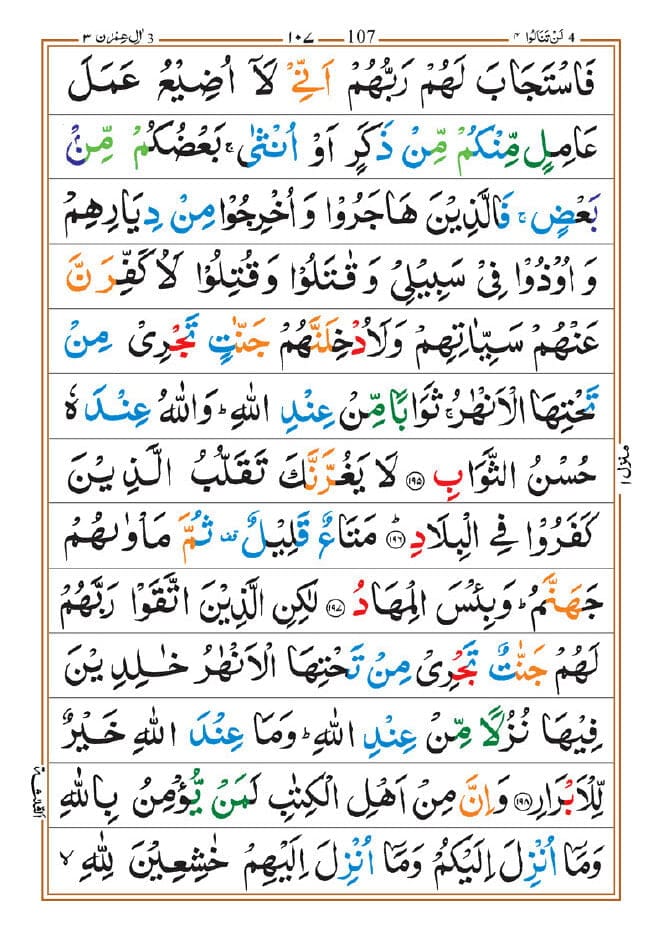 4 لَنْ تَنَالُوا ٤ 107 ١٠٧ 3 اٰلِ عِمْرٰن ٣
فَاسْتَجَابَ لَهُمْ رَبُّهُمْ اَنِّيْ لَآ اُضِيْعُ عَمَلَ
عَامِلٍ مِّنْكُمْ مِّنْ ذَكَرٍ اَوْ اُنْثٰىۚ بَعْضُكُمْ مِّنْۢ
بَعْضٍۚ فَالَّذِيْنَ هَاجَرُوْا وَاُخْرِجُوْا مِنْ دِيَارِهِمْ
وَاُوْذُوْا فِيْ سَبِيْلِيْ وَقٰتَلُوْا وَقُتِلُوْا لَاُكَفِّرَنَّ
عَنْهُمْ سَيِّاٰتِهِمْ وَلَاُدْخِلَنَّهُمْ جَنّٰتٍ تَجْرِيْ مِنْ
تَحْتِهَا الْاَنْهٰرُۚ ثَوَابًا مِّنْ عِنْدِ اللّٰهِؕ وَاللّٰهُ عِنْدَهٗ
حُسْنُ الثَّوَابِ ۝۱۹۵ لَا يَغُرَّنَّكَ تَقَلُّبُ الَّذِيْنَ
كَفَرُوْا فِي الْبِلَادِؕ ۝۱۹۶ مَتَاعٌ قَلِيْلٌ قف ثُمَّ مَاْوٰىهُمْ
جَهَنَّمُؕ وَبِئْسَ الْمِهَادُ ۝۱۹۷ لٰكِنِ الَّذِيْنَ اتَّقَوْا رَبَّهُمْ
لَهُمْ جَنّٰتٌ تَجْرِيْ مِنْ تَحْتِهَا الْاَنْهٰرُ خٰلِدِيْنَ
فِيْهَا نُزُلًا مِّنْ عِنْدِ اللّٰهِؕ وَمَا عِنْدَ اللّٰهِ خَيْرٌ
لِّلْاَبْرَارِ ۝۱۹۸ وَاِنَّ مِنْ اَهْلِ الْكِتٰبِ لَمَنْ يُّؤْمِنُ بِاللّٰهِ
وَمَآ اُنْزِلَ اِلَيْكُمْ وَمَآ اُنْزِلَ اِلَيْهِمْ خٰشِعِيْنَ لِلّٰهِ ۙ
منزل ١